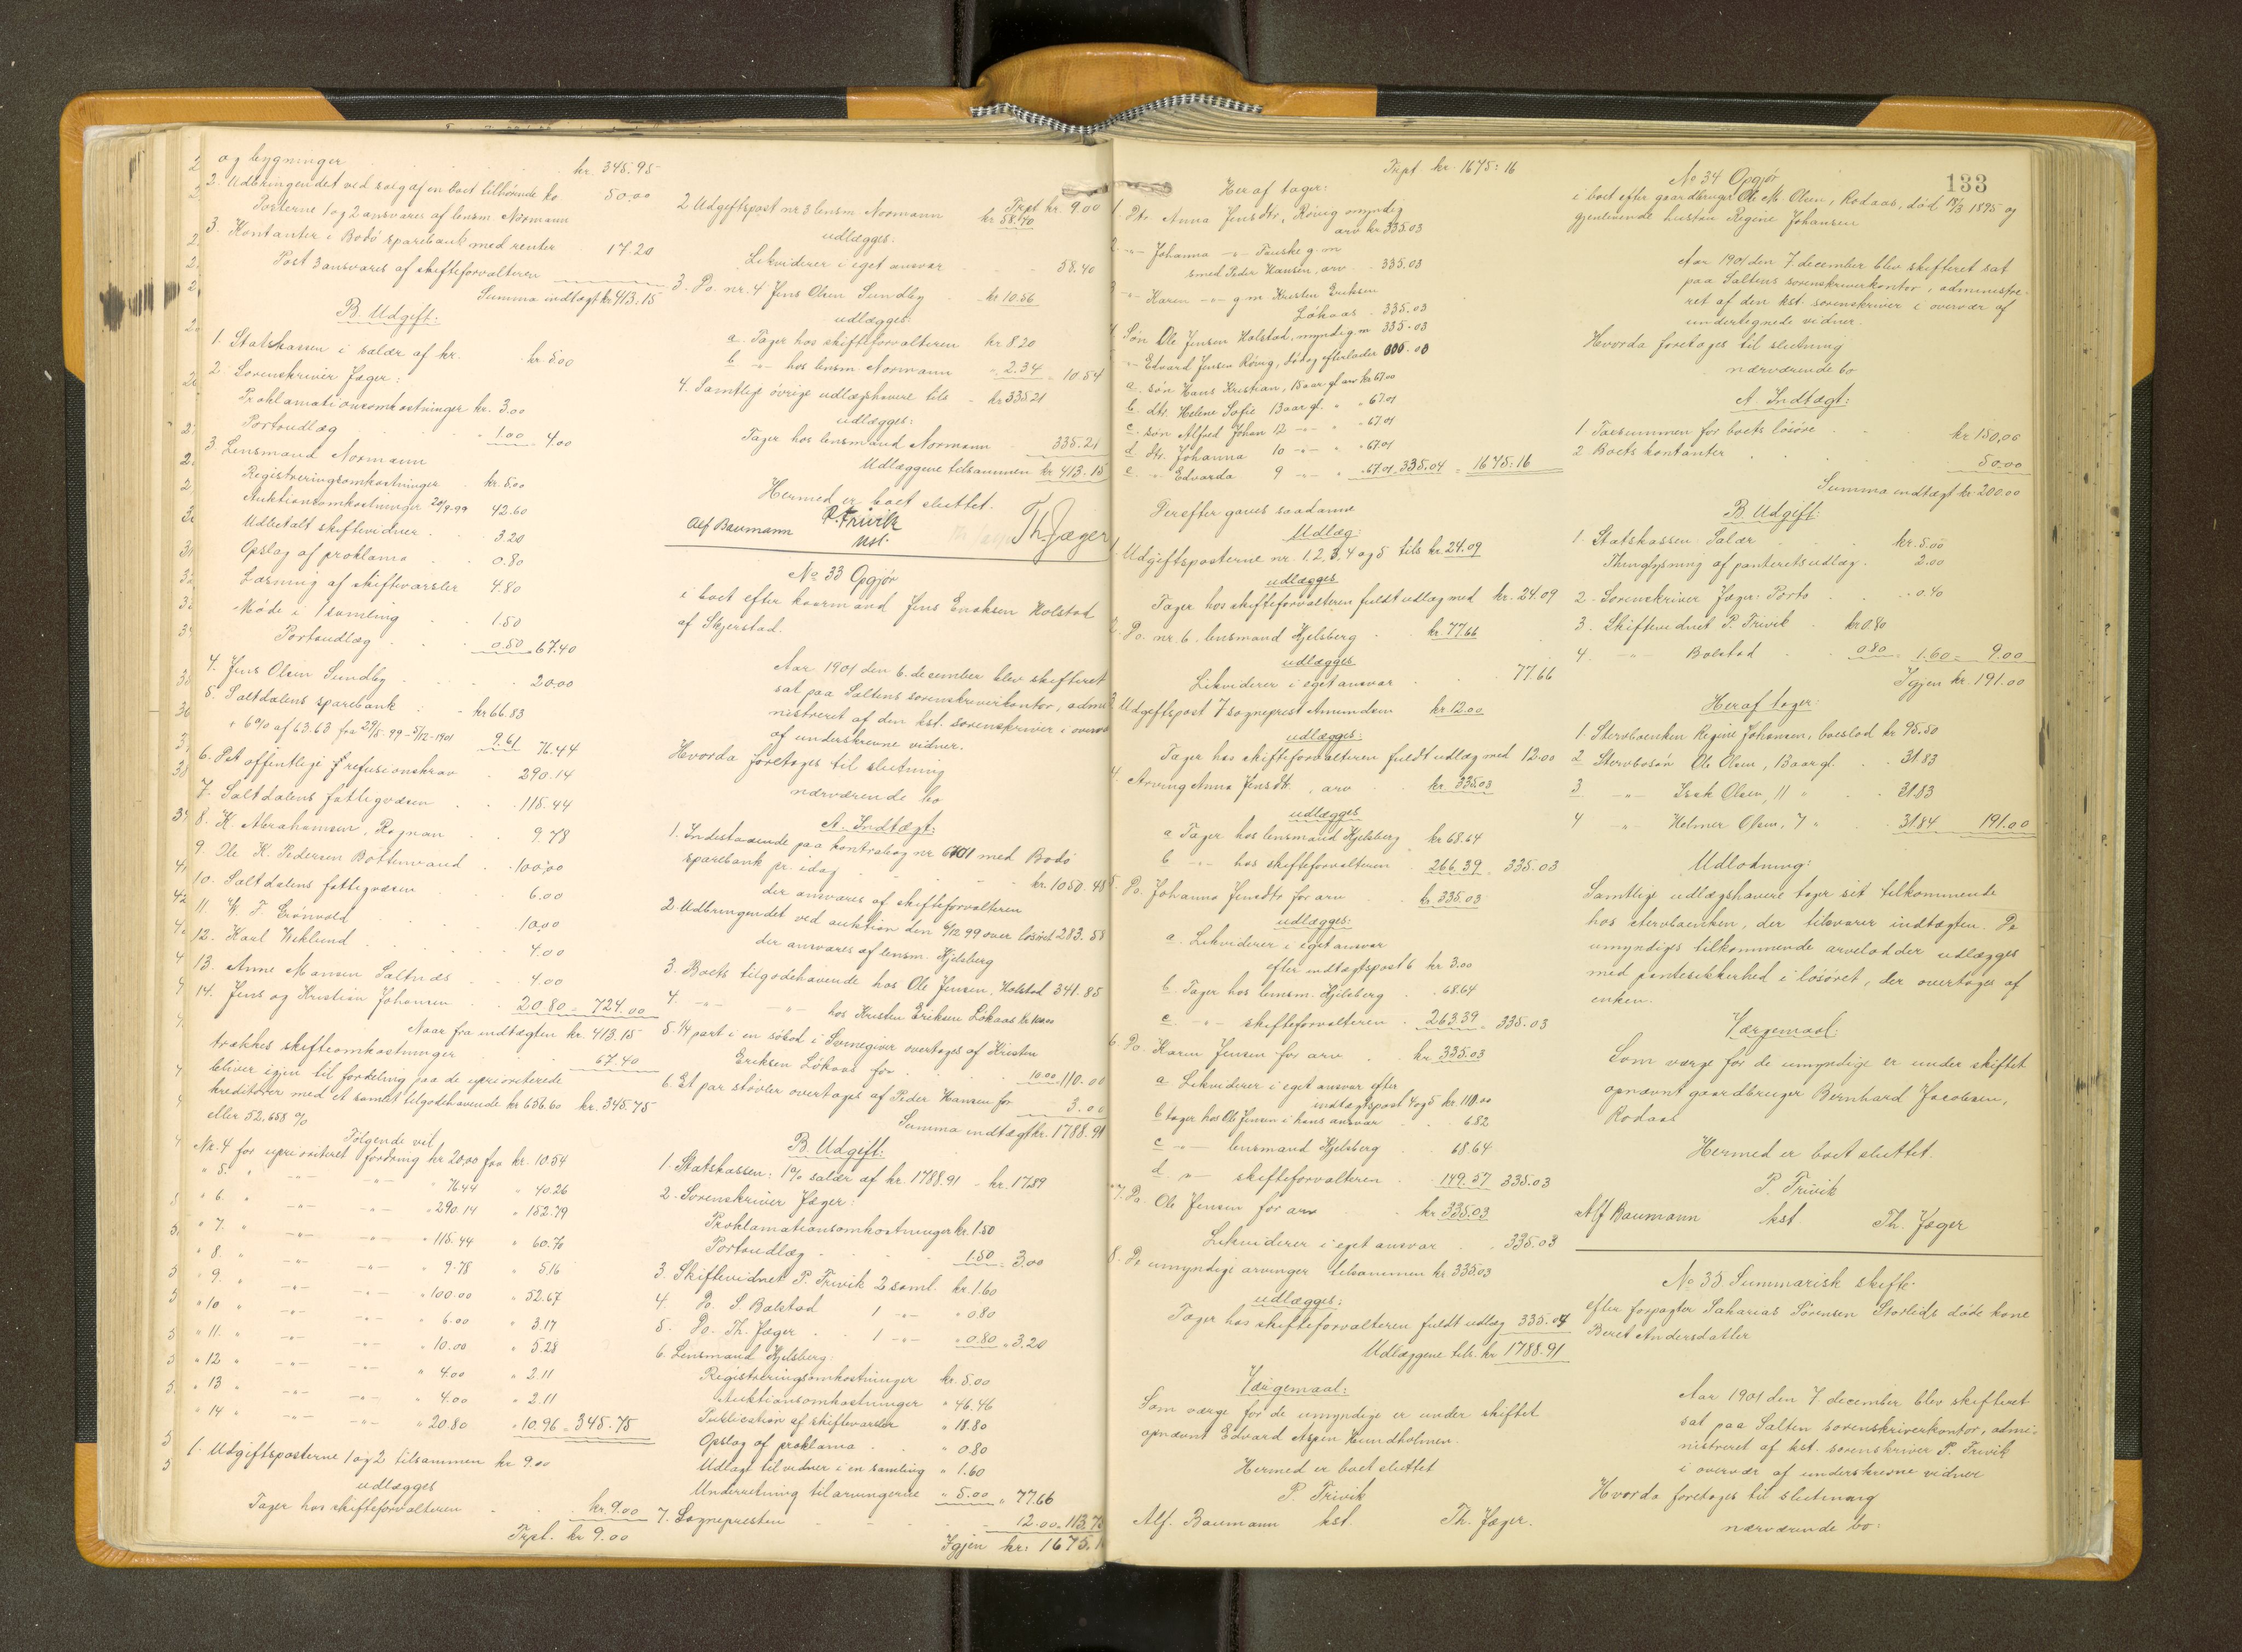 og bygninger kr. 345.95
2. Udbringendet ved salg af en boet tilhørende ko 50.00
Posterne 1 og 2 ansvares af lensm. Normann
3. Kontanter i Bodø sparebank med renter 17.20
Post 3 ansvares af skifteforvalteren
Summa indtægt kr 413.15
B. Udgift.
1. Statskassen i salær af kr. kr. 5.00
2. Sorenskriver Jæger:
Proklamationsomkostninger kr. 3.00
Portoudlæg " 1.00 4.00
3 Lensmand Normann
Registreringsomkostninger kr. 5.00
Auktionsomkostninger 20/9-99 42.60
Udbetalt skiftevidner 3.20
Opslag af proklama 0.80
Læsning af skiftevarsler 4.80
Møde i 1 samling 1.50
Portoudlæg 0.50 67.40
4. Jens Olsen Sundby 20.00
5. Saltdalens sparebank kr 66.83
" 6% af 63.63 fra 29/5-99-5/12-1901 9.61 76.44
6. Det offentlige f refusionskrav 290.14
7. Saltdalens fattigvæsen 115.44
8. K. Abrahamsen, Rognan 9.78
9. Ole K. Pedersen Bottenvand 100.00
10. Saltdalens fattigvæsen 6.00
11. W. F. Grønvold 10.00
12. Karl Wiklund 4.00
13. Anne Mansen Saltnæs 4.00
14. Jens og Kristian Johansen 20.80 = 724.00
Naar fra indtægten kr. 413.15
trækkes skifteomkostninger 67.40
bliver igjen til fordeling paa de uprioriterede
kreditorer med et samlet tilgodehavende kr 656.60 kr. 345.75
eller 52,658 %
Følgende vil
Nr. 4 for uprioriteret fordring kr 20.00 faa kr. 10.54
" 5. " -"- -"- " 76.44 " 40.26
" 6. " -"- -"- " 290.14 " 152.79
" 7. " -"- -"- " 115.44 " 60.70
" 8. " -"- -"- " 9.78 " 5.16
" 9. " -"- -"- " 100.00 " 52.67
" 10 " -"- -"- " 6.00 " 3.17
" 11. " -"- -"- " 10.00 " 5.28
" 12 " -"- -"- " 4.00 " 2.11
" 13 " -"- -"- " 4.00 " 2.11
" 14 " -"- -"- " 20.80 " 10.96 = 345.75
1. Udgiftsposterne 1 og 2 tilsammen kr 9.00
udlægges
Tager hos skifteforvalteren kr. 9.00
Trpt. kr 9.00
Trpt kr. 9.00
2 Udgiftspost nr 3 lensm. Normann kr 58.40
udlægges.
Likviderer i eget ansvar 58.40
3. Do. nr. 4 Jens Olsen Sundby kr 10.56
udlægges:
a. Tager hos skifteforvalteren kr 8.20
b -"- hos lensm. Normann " 2.34 = 10.54
4. Samtlige øvrige udlægshavere tils kr 335.21
udlægges:
Tager hos lensmand Normann 335.21
Udlæggene tilsammen kr 413.15
Hermed er boet sluttet.
Alf Baumann P. Trivik kst. Th. Jæger
No 33 Opgjør
i boet efter kaarmand Jens Enoksen Holstad
af Skjerstad.
Aar 1901 den 6. december blev skifteret
sat paa Saltens sorenskriverkontor, admi-
nistreret af den kst. sorenskriver i overvær
af underskrevne vidner.
Hvorda foretoges til slutning
nærværende bo
A. Indtægt:
1. Indestaaende paa kontrabog nr 6701 med Bodø
sparebank pr. idag kr. 1050.48
der ansvares af skifteforvalteren
2. Udbringendet ved auktion den 6/12 99 over løsøret 283.58
der ansvares af lensm. Hjelsberg
3. Boets tilgodehavende hos Ole Jensen, Holstad 341.85
4. -"- -"- hos Kristen Eriksen Løkaas kr 100.00
5. 1/4 part i en søbod i Svinegiver overtages af Kristen
Eriksen Løkaas for 10.00 110.00
6. Et par støvler overtages af Peder Hansen for 3.00
Summa indtægt kr. 1788.91
B. Udgift:
1. Statskassen: 1% salær af kr. 1788.91 kr. 17.89
2. Sorenskriver Jæger:
Proklamationsomkostninger kr. 1.50
Portoudlæg 1.50 = 3.00
3. Skiftevidnet P. Trivik 2 saml. kr. 1.60
4. Do. S. Bolstad 1 -"- " 0.80
5. Do. Th. Jæger 1 -"- " 0.80 " 3.20
6. Lensmand Hjelsberg:
Registreringsomkostninger kr. 5.00
Auktionsomkostninger " 46.46
Publication af skiftevarsler " 18.80
Opslag af proklama " 0.80
Udlagt til vidner i en samling " 1.60
Underretning til arvingerne " 5.00 " 77.66
7. Sognepresten 12.00 = 113.75
Igjen kr: 1675.16
Trpt kr. 1675:16
Heraf tager:
1 Dtr. Anna Jensdtr, Røvig myndig
arv kr. 335.03
2. -"- Johanna -"- Fauske g. m.
smed Peder Hansen, arv 335.03
3 -"- Karen -"- g. m. Kristen Eriksen
Løkaas 335.03
4. Søn Ole Jensen Holstad, myndig m 335.03
" Edvard Jensen Røvig, død og efterlader 335.03
a. søn Hans Kristian, 15 aar gl. arv kr 67.00
b. dtr. Helene Sofie 13 aar gl. " " 67.01
c. søn Alfred Johan 12 -"- " 67.01
d dtr. Johanna 10 -"- " 67.01
e. " Edvarda 9 -"- " 67.01 335.04 = 1675:16
Derefter gaves saadanne
Udlæg:
1. Udgiftsposterne nr. 1, 2, 3, 4 og 5 tils kr. 24.09
udlægges
Tager hos skifteforvalteren fuldt udlæg med kr. 24.09
2. Do. nr. 6. lensmand Hjelsberg kr. 77.66
udlægges
Likviderer i eget ansvar 77.66
3. Udgiftspost 7 sogneprest Amundsen kr. 12.00
udlægges:
Tager hos skifteforvalteren fuldt udlæg med 12.00
4. Arving Anna Jensdtr., arv kr. 335.03
udlægges
a Tager hos lensmand Hjelsberg kr 68.64
b -"- hos skifteforvalteren 266.39 = 335.03
5. Do. Johanna Jensdtr for arv kr 335.03
udlægges:
a. Likviderer i eget ansvar
efter indtægtspost 6 kr 3.00
b. Tager hos lensm. Hjelsberg " 68.64
c. -"- skifteforvalteren 263.39 = 335.03
6 Do. Karen Jensen for arv kr 335.03
a Likviderer i eget ansvar efter
indtægtspost 4 og 5 kr. 110.00
b tager hos Ole Jensen i hans ansvar 6.82
c -"- lensmand Hjelsberg 68.64
d. -"- skifteforvalteren 149.57 335.03
7. Do. Ole Jensen for arv kr. 335.03
Likviderer i eget ansvar 335.03
8. De umyndige arvinger tilsammen kr 335.03
udlægges:
Tager hos skifteforvalteren fuldt udlæg 335.04
Udlæggene tils. kr 1788.91
Værgemaal:
Som værge for de umyndige er under skiftet
opnævnt Edvard Aspen Hundholmen.
Hermed er boet sluttet
P. Trivik
Alf. Baumann kst. Th. Jæger.
133
No 34 Opgjør
i boet efter gaardbruger Ole M. Olsen, Rodaas, død 18/3 1895 og
gjenlevende hustru Regine Johansen
Aar 1901 den 7 december blev skifteret sat
paa Saltens sorenskriverkontor, administre-
ret af den kst. sorenskriver i overvær af
undertegnede vidner.
Hvorda foretoges til slutning
nærværende bo
A. Indtægt:
1. Taxsummen for boets løsøre kr 150.00
2 Boets kontanter 50.00
Summa indtægt kr. 200.00
B. Udgift:
1. Statskassen: Salær kr. 5.00
Thinglysning af panteretsudlæg. 2.00
2. Sorenskriver Jæger: Porto " 0.40
3. Skiftevidnet P. Trivik kr 0.80
4. -"- Bolstad 0.80 = 1.60 = 9.00
Igjen kr. 191.00
Heraf tager:
1. Stervboenken Regine Johansen, boeslod kr 95.50
2 Stervbosøn Ole Olsen, 13 aar gl. 31.83
3 -"- Isak Olsen, 11 " 31.83
4 -"- Helmer Olsen, 7 " 31.84 191.00
Udlodning:
Samtlige udlægshavere tager sit tilkommende
hos stervboenken, der tilsvarer indtægten. De
umyndiges tilkommende arvelodder udlægges
med pantesikkerhed i løsøret, der overtages af
enken.
Værgemaal:
Som værge for de umyndige er under skiftet
opnævnt gaardbruger Bernhard Jacobsen,
Rodaas
Hermed er boet sluttet.
P. Trivik
Alf Baumann kst Th. Jæger
No 35. Summarisk skifte
efter forpagter Sakarias Sørensen Storlids døde kone
Beret Andersdatter
Aar 1901 den 7 december blev skifteret
sat paa Salten sorenskriverkontor, admi-
nistreret af kst. sorenskriver P. Trivik
i overvær af underskrevne vidner
Hvorda foretoges til slutning
nærværende bo: